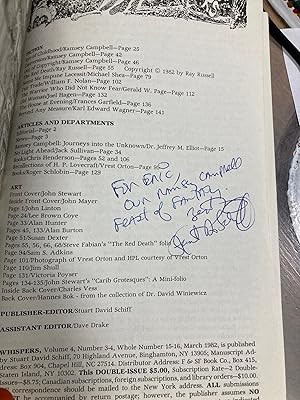 FICTION
Childhood/Ramsey Campbell—Page 25
Ramsey Campbell—Page 42
Copyright/Ramsey Campbell—Page 46
Red Show/Ray Russell—Page 55 Copyright © 1982 by Ray Russell
Impune Lacessit/Michael Shea—Page 79
Trade/William F. Nolan—Page 102
Warrior Who Did Not Know Fear/Gerald W. Page—Page 112
Woman/Joel Hagen—Page 132
House at Evening/Frances Garfield—Page 136
Any Measure/Karl Edward Wagner—Page 141
ARTICLES AND DEPARTMENTS
Editorial—Page 2
News—Page 3
Ramsey Campbell: Journeys into the Unknown/Dr. Jeffrey M. Elliot—Page 15
Light Ahead/Jack Sullivan—Page 34
Books/Chris Henderson—Pages 52 and 106
Recollections of H. P. Lovecraft/Vrest Orton—
Books/Roger Schlobin—Page 129
For Eric
Our Ramsey Campbell
Feast of Fantasy
Best
ART
Front Cover/John Stewart
Inside Front Cover/John Mayer
Page 1/John Linton
Page 24/Lee Brown Coye
Page 33/Alan Hunter
Pages 45, 133/Alan Burton
Page 51/Susan Dexter
Pages 55, 56, 66, 68/Steve Fabian's "The Red Death" folio
Page 94/Sam S. Adkins
Page 101/Photograph of Vrest Orton and HPL courtesy of Vrest Orton
Page 110/Jim Shull
Page 131/Victoria Poyser
Pages 134-135/John Stewart's "Carib Grotesques": A Mini-folio
Inside Back Cover/Charles Vess
Back Cover/Hannes Bok - from the collection of Dr. David Winiewicz
PUBLISHER-EDITOR/Stuart David Schiff
ASSISTANT EDITOR/Dave Drake
WHISPERS, Volume 4, Number 3-4, Whole Number 15-16, March 1982, is published
by Stuart David Schiff, 70 Highland Avenue, Binghamton, NY 13905; Manuscript Ad-
dress: Box 904, Chapel Hill, NC 27514; Distributor Address: F & SF Book Co., Box 415,
Staten Island, NY 10302. This DOUBLE-ISSUE $5.00, Subscription Rate—2 Double-
Issues—$8.75; Canadian subscriptions, foreign subscriptions, and library orders/$10.00.
correspondence should be mailed to the New York address. ALL submissions
MUST be accompanied by return postage; however, the publisher assumes NO